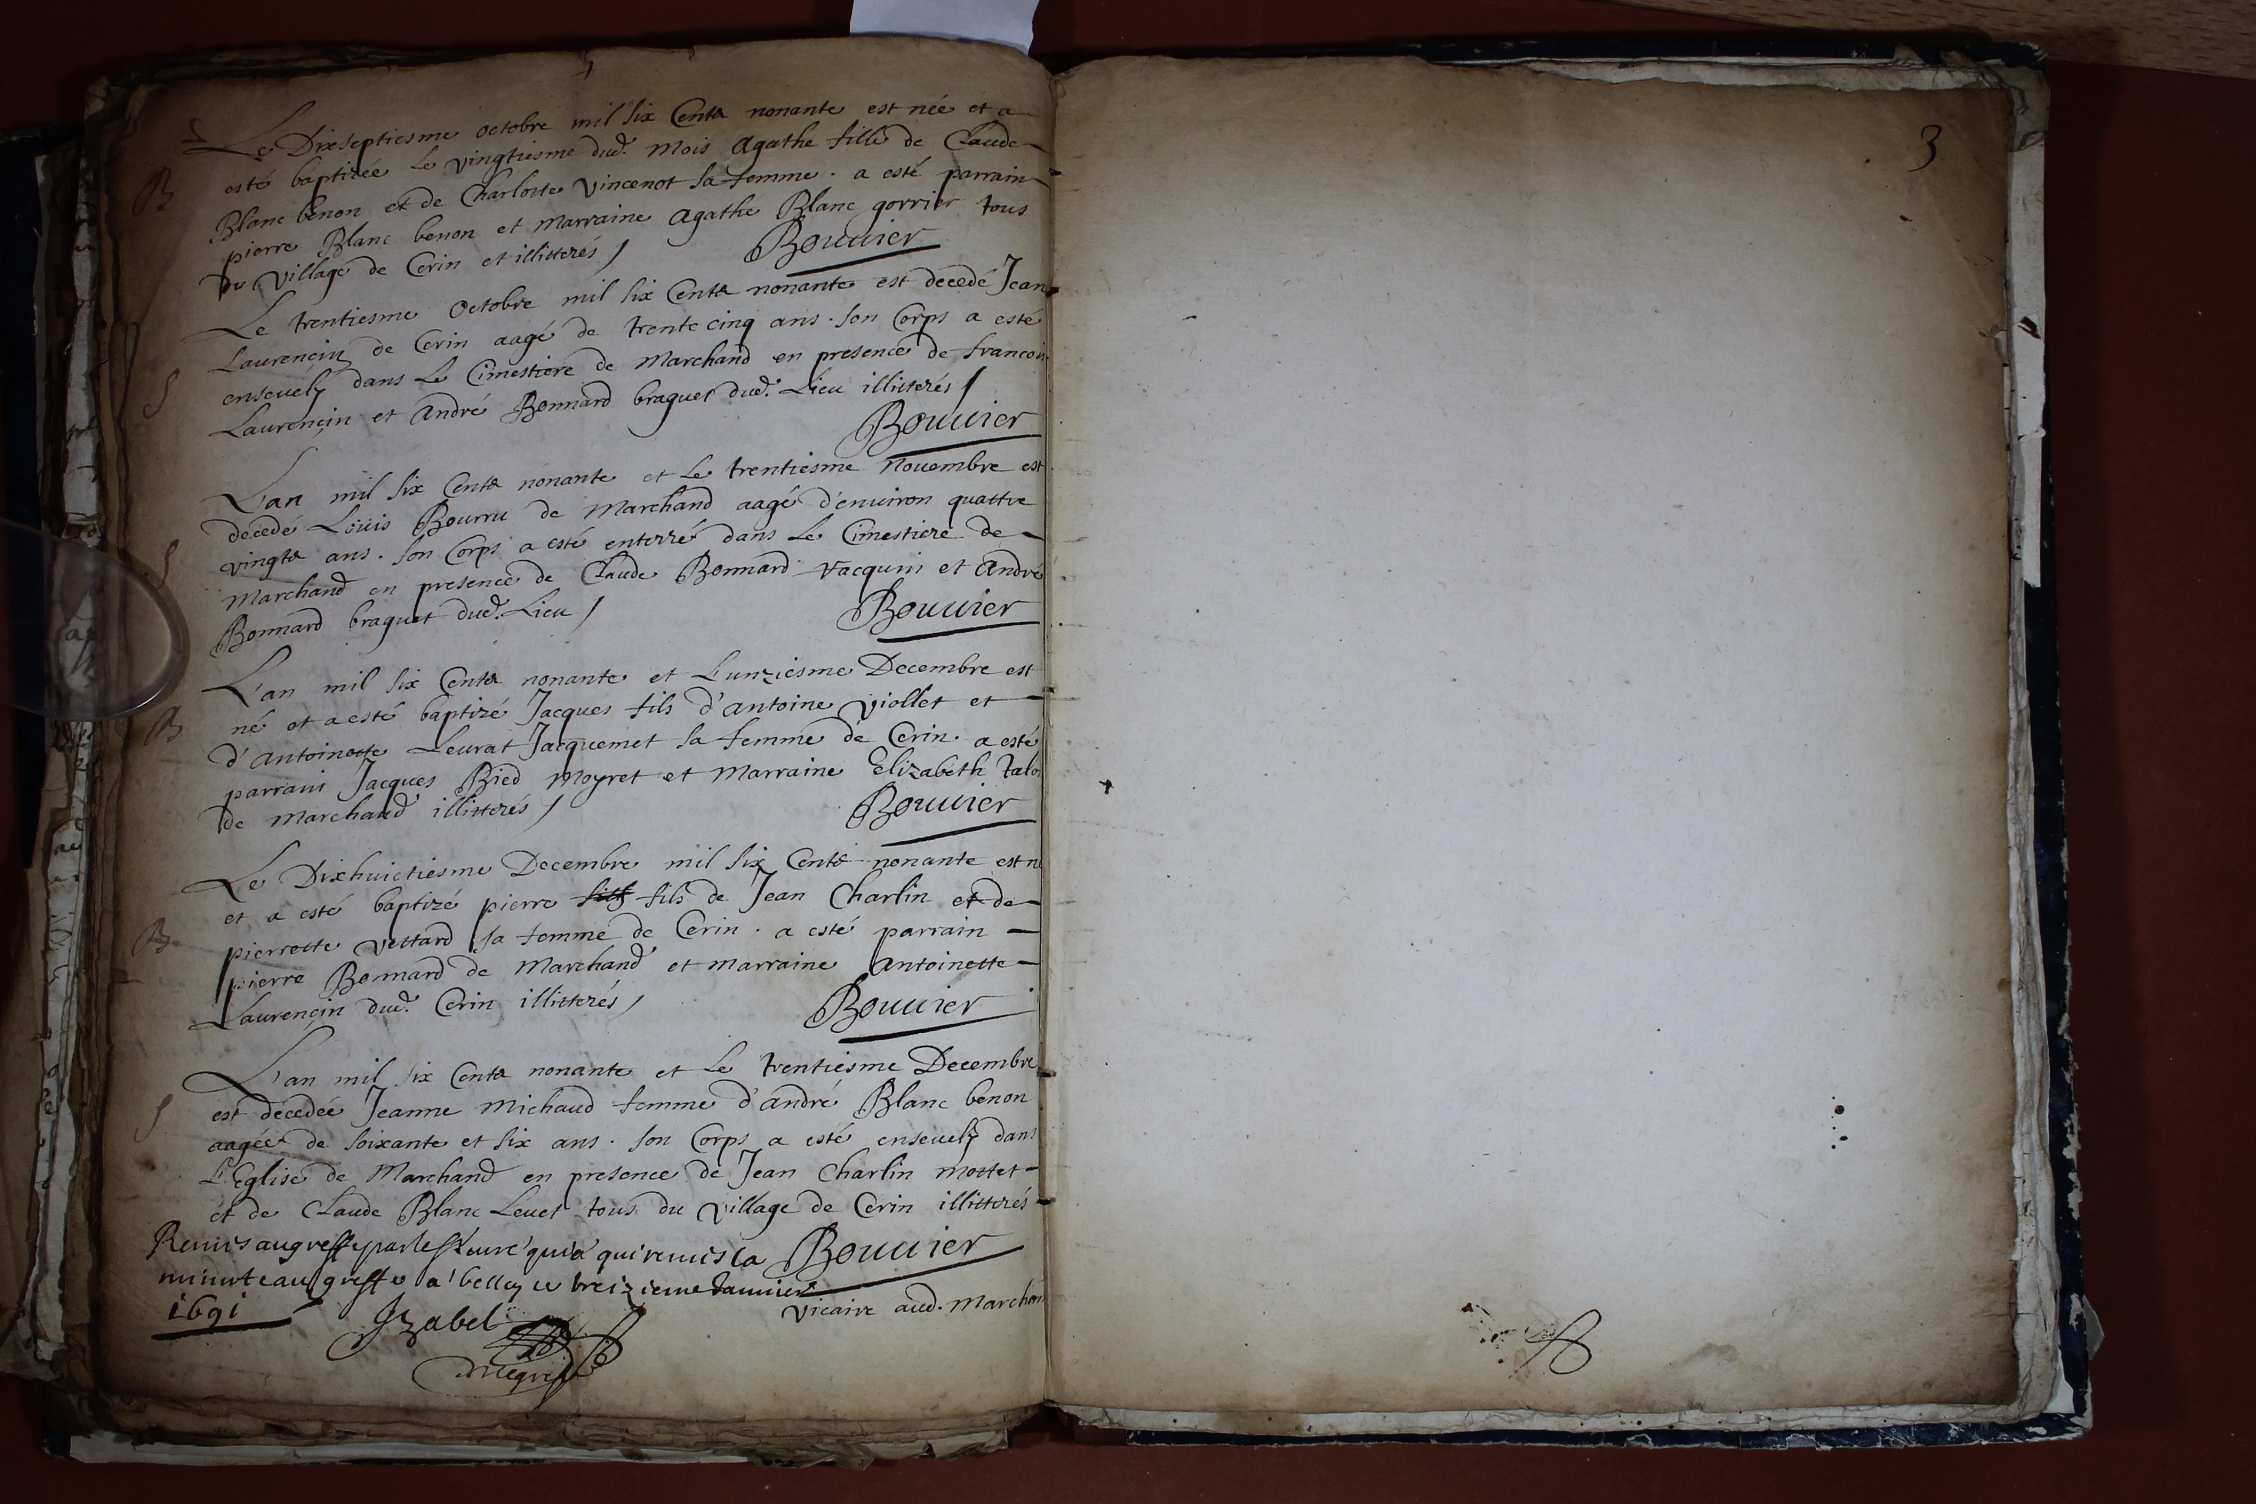 Le Dixseptiesme octobre mil six Cents nonante est née et a
B esté baptizée le vingtiesme dud. mois Agathe fille de Claude
Blanc benon et de Charlotte Vincenot sa femme. a esté parrain
pierre Blanc benon et marraine Agathe Blanc gorrier tous
du village de Cerin et illitterés / Bouuier
Le trentiesme Octobre mil six Cents nonante est decedé Jean
Laurençin de Cerin aagé de trente cinq ans. son Corps a esté
S ensevely dans le Cimestiere de Marchand en presence de francois
Laurençin et André Bonnard braguet dud. Lieu illitterés /
Bouuier
L'an mil six Cents nonante et le trentiesme Nouembre est
décedé Loüis Bourru de Marchand aagé d'enuiron quattre
S vingts ans. son Corps a esté enterré dans le Cimestiere de
Marchand en presence de Claude Bonnard vacquin et André
Bonnard braguet dud. Lieu / Bouuier
L'an mil six Cents nonante et L'unziesme Decembre est
B né et a esté baptizé Jacques fils d'antoine Viollet et
d'Antoinette Leurat Jacquemet sa femme de Cerin. a esté
parrain Jacques Bied Moyret et Marraine Elizabeth
de Marchand illitterés / Bouuier
Le Dixhuictiesme Decembre mil six Cents nonante est né
et a esté baptizé pierre fils de Jean Charlin et de
B pierrette Vettard sa femme de Cerin. a esté parrain
pierre Bonnard de Marchand et marraine Antoinette
Laurençin dud. Cerin illitterés / Bouuier
L'an mil six Cents nonante et Le trentiesme Decembre
S est décedée Jeanne Michaud femme d'andré Blanc benon
aagée de soixante et six ans. son Corps a esté ensevely dans
L'Eglise de Marchand en presence de Jean Charlin mottet
et de Claude Blanc Leuet tous du village de Cerin illitterés
Remis au greffe par le Sr curé qui a remis la Bouuier
minute au greffe a belley ce treizieme Januier
1691 Izabel vicaire aud. Marchand
3